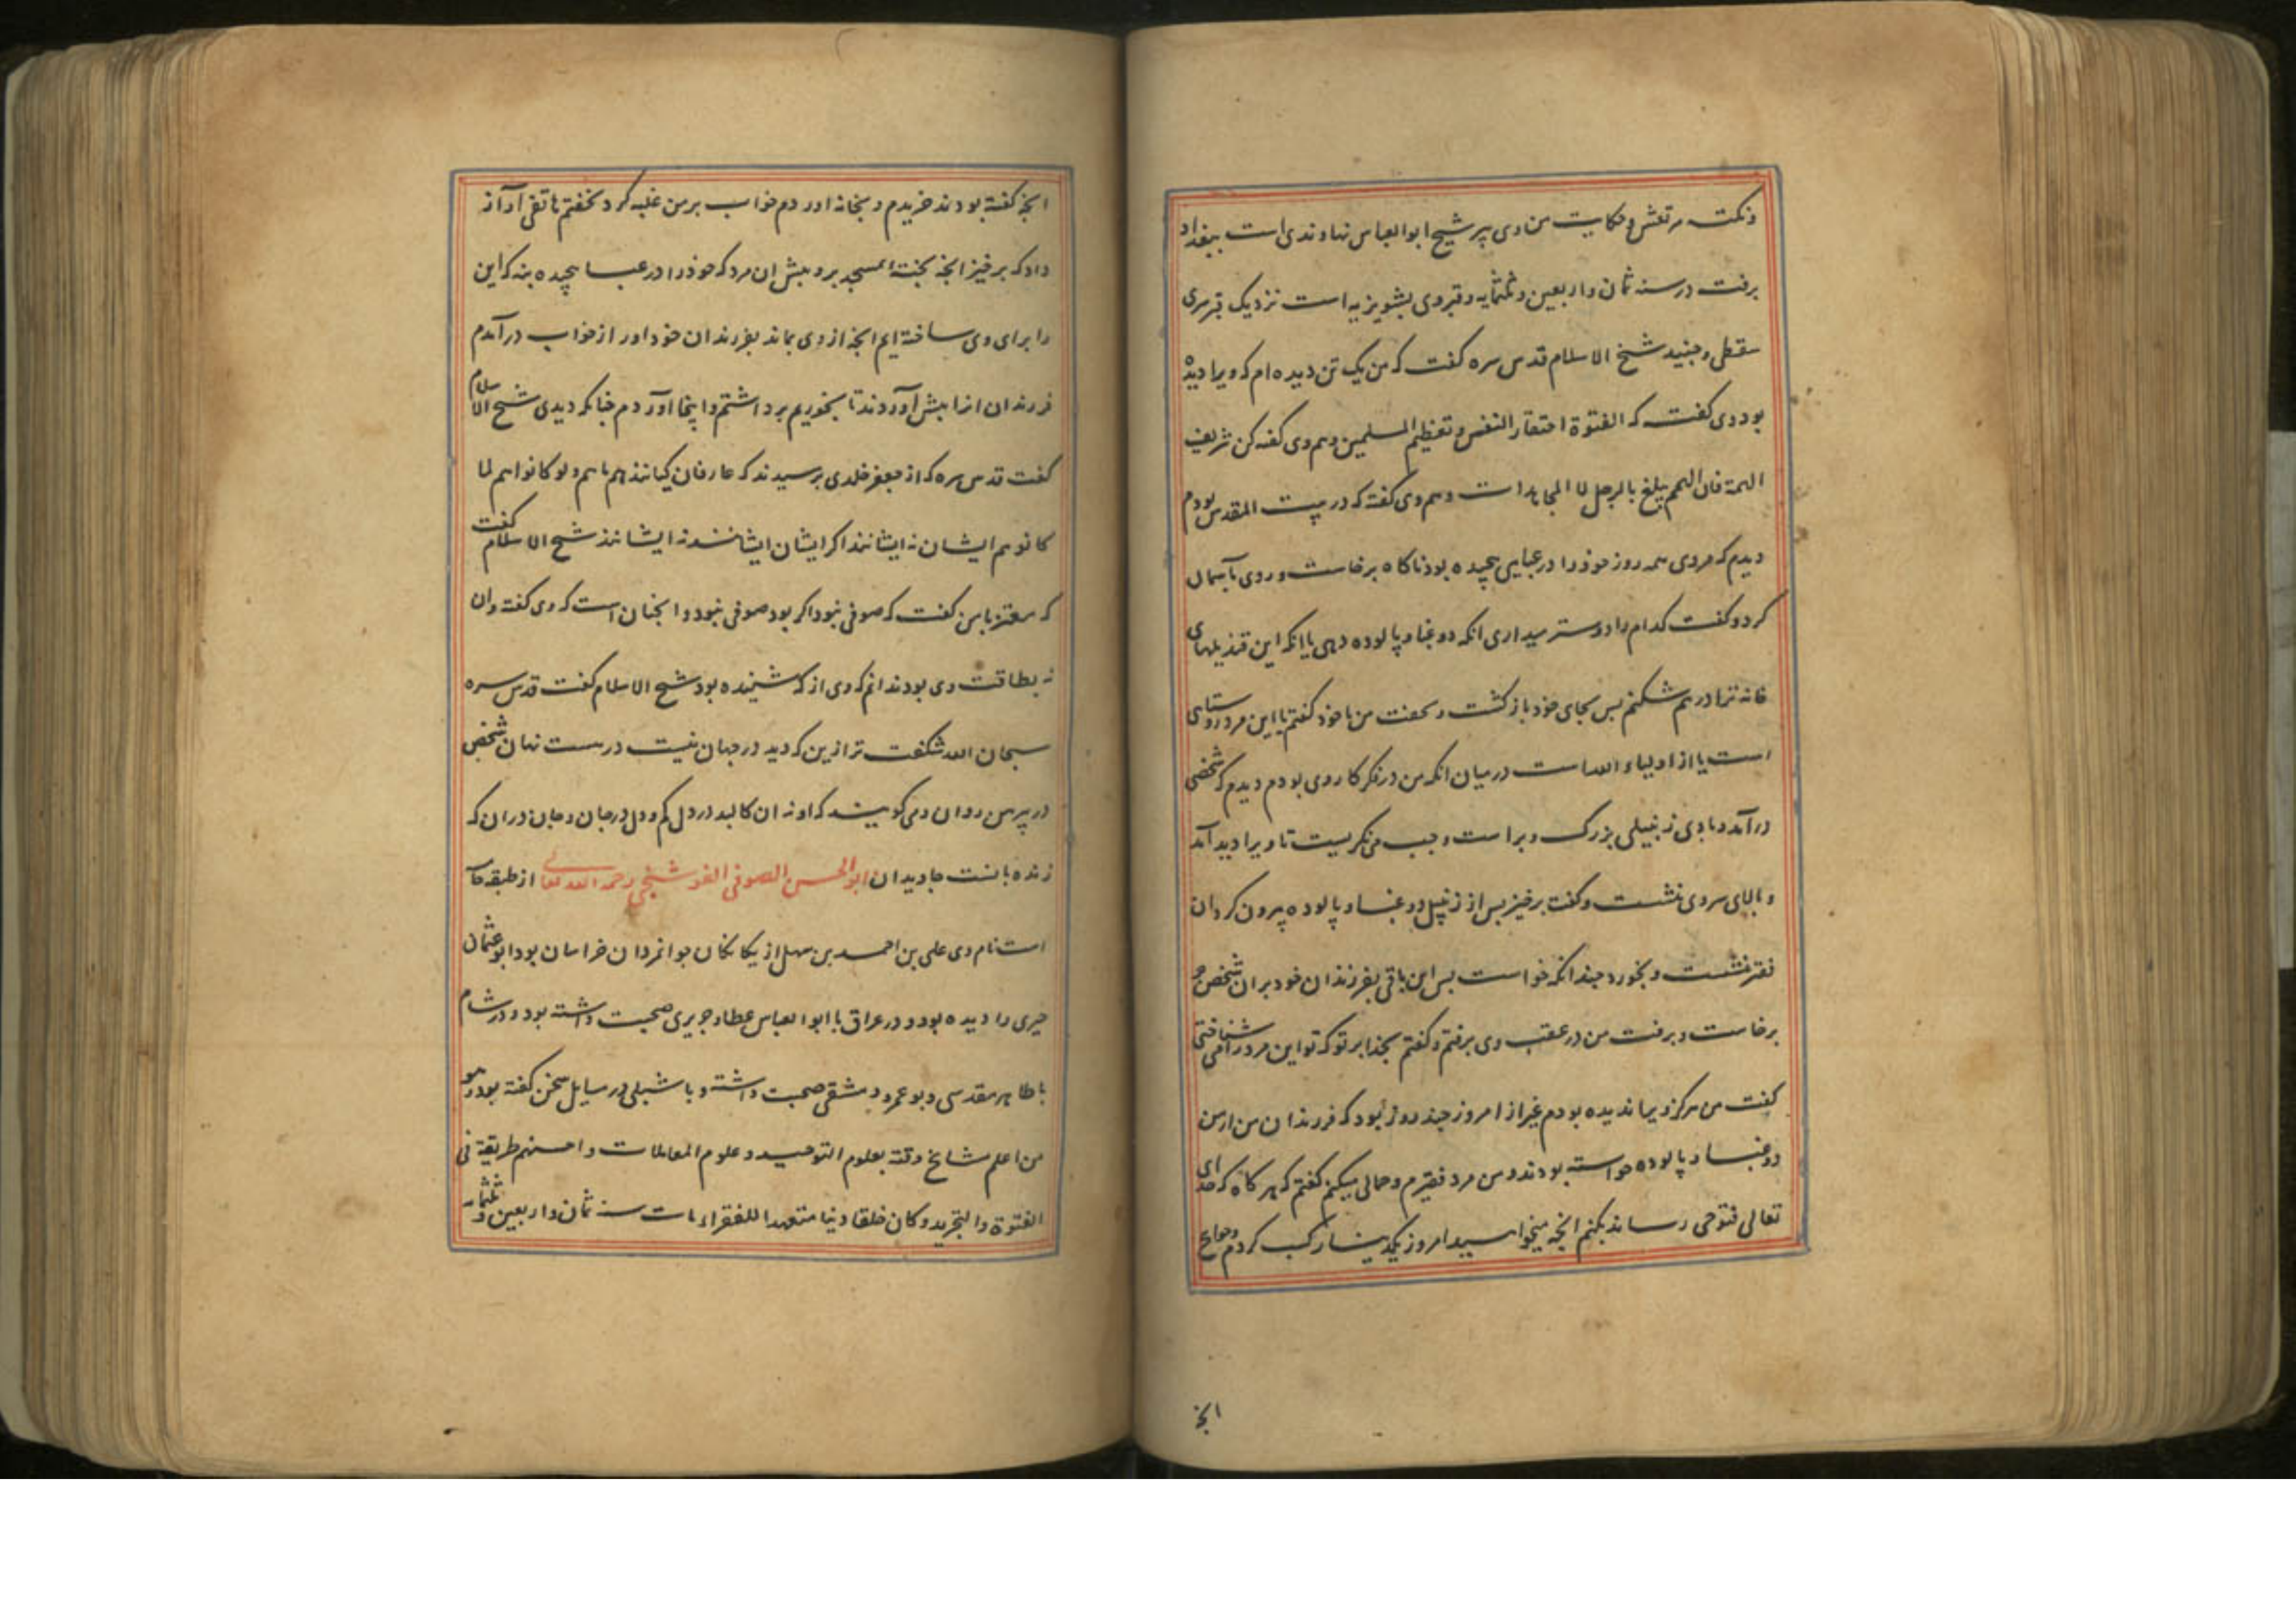 ونکت مرتعش و حکایت من وی پیر شیخ ابوالعباس نهاوندی است ببغداد
برفت در سنه ثمان و اربعین و ثلثمایه و قبر وی بشونیزیه است نزدیک قبر سری
سقطی و جنید شیخ الاسلام قدس سره گفت که من یک تن دیده ام که ویرا دیده
بود وی گفت که الفتوة احتقار النفس و تعظیم المسلمین و هم وی گفته کن شریف
الهمة فان الهمم یبلغ بالرجل لا المجاهدات و هم وی گفته که در بیت المقدس بودم
دیدم که مردی همه روز خود را در عبایی پیچیده بود ناکاه برخاست و روی بآسمان
کرد و گفت کدام را دوستر میداری انکه دوغبا و پالوده دهی یا انکه این قندیلهای
خانه ترا درهم شکنم پس بجای خود باز کشت و بخفت من با خود گفتم یا این مرد روستای
است یا از اولیاء الله است در میان انکه من در فکر کار وی بودم دیدم که شخصی
درآمد و با وی زنبیلی بزرک و براست و چپ می نکریست تا ویرا دید آمد
و بالای سر وی نشست و گفت برخیز پس از زنبیل دوغبا و پالوده بیرون کرد ان
فقیر نشست و بخورد چندانکه خواست پس این باقی بفرزندان خود بر ان شخص چو
برخاست و برفت من در عقب وی برفتم و گفتم بخدا بر تو که تو این مرد را می شناختی
گفت من هرکز ویرا ندیده بودم غیر از امروز چند روز بود که فرزندان من از من
دوغبا و پالوده خواسته بودند و من مرد فقیرم و حمالی میکنم گفتم که هر کاه که خدای
تعالی فتوحی رساند بکنم انچه میخواهید امروز یکدینار کسب کردم و حوایج
انچه
انچه گفته بودند خریدم و بخانه اوردم خواب بر من غلبه کرد بخفتم هاتفی آواز
داد که برخیز انچه پخته بمسجد بر و پیش ان مرد که خود را در عبا پیچیده بنه که این
را برای وی ساخته ایم انچه از وی بماند بفرزندان خود اور از خواب درآمدم
فرزندان انرا پیش آوردند تا بخوریم برداشتم و اینجا آوردم چنانکه دیدی شیخ الاسلام
گفت قدس سره که از جعفر خلدی پرسیدند که عارفان کیانند هم ما هم و لو کانوا هم لما
کانوا هم ایشان نه ایشانند اکر ایشان ایشانند نه ایشانند شیخ الاسلام گفت
که معتز با من گفت که صوفی نبود اکر بود صوفی نبود و انچنان است که وی گفته و ان
نه بطاقت وی بود ندانم که وی از که شنیده بود شیخ الاسلام گفت قدس سره
سبحان الله شکفت تر ازین که دید در جهان نیست درست نهان شخص
در پیرهن روان و می کویند که او نه ان کالبد در دل کم و دل در جان و جان دران که
زنده بانست جاویدان ابوالحسن الصوفی الفوشنجی رحمه الله تعالی از طبقه خا
است نام وی علی بن احمد بن سهل از یکانکان جوانمردان خراسان بود ابوعثمان
حیری را دیده بود و در عراق با ابوالعباس عطا و جریری صحبت داشته بود و در شام
با طاهر مقدسی و بو عمرو دمشقی صحبت داشته و با شبلی در سایل سخن گفته بود و هو
من اعلم مشایخ وقته بعلوم التوحید و علوم المعاملات و احسنهم طریقة فی
الفتوة والتجرید و کان خلقا دینا متعهدا للفقراء مات سنه ثمان و اربعین و ثلثمایه